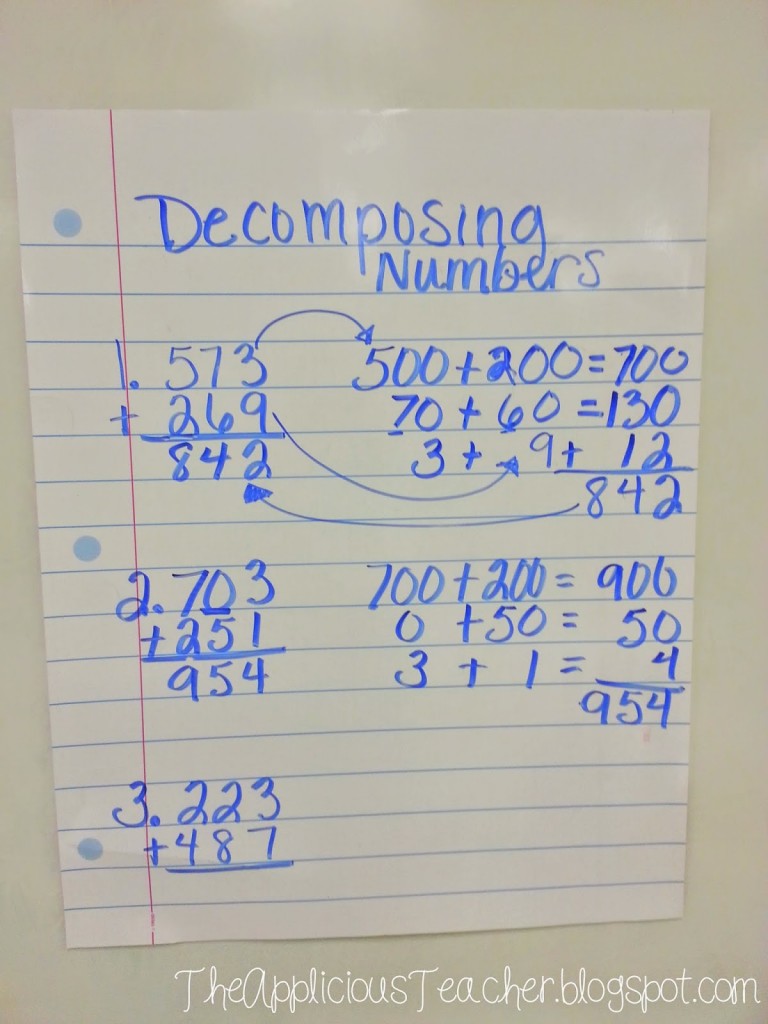 Decomposing
Numbers
1. 573 500+200=700
+ 269 70 + 60 =130
842 3 + 9+ 12
842
2. 703 700+200= 900
+251 0 +50= 50
954 3 + 1 = 4
954
3. 223
+487
TheAppliciousTeacher.blogspot.com